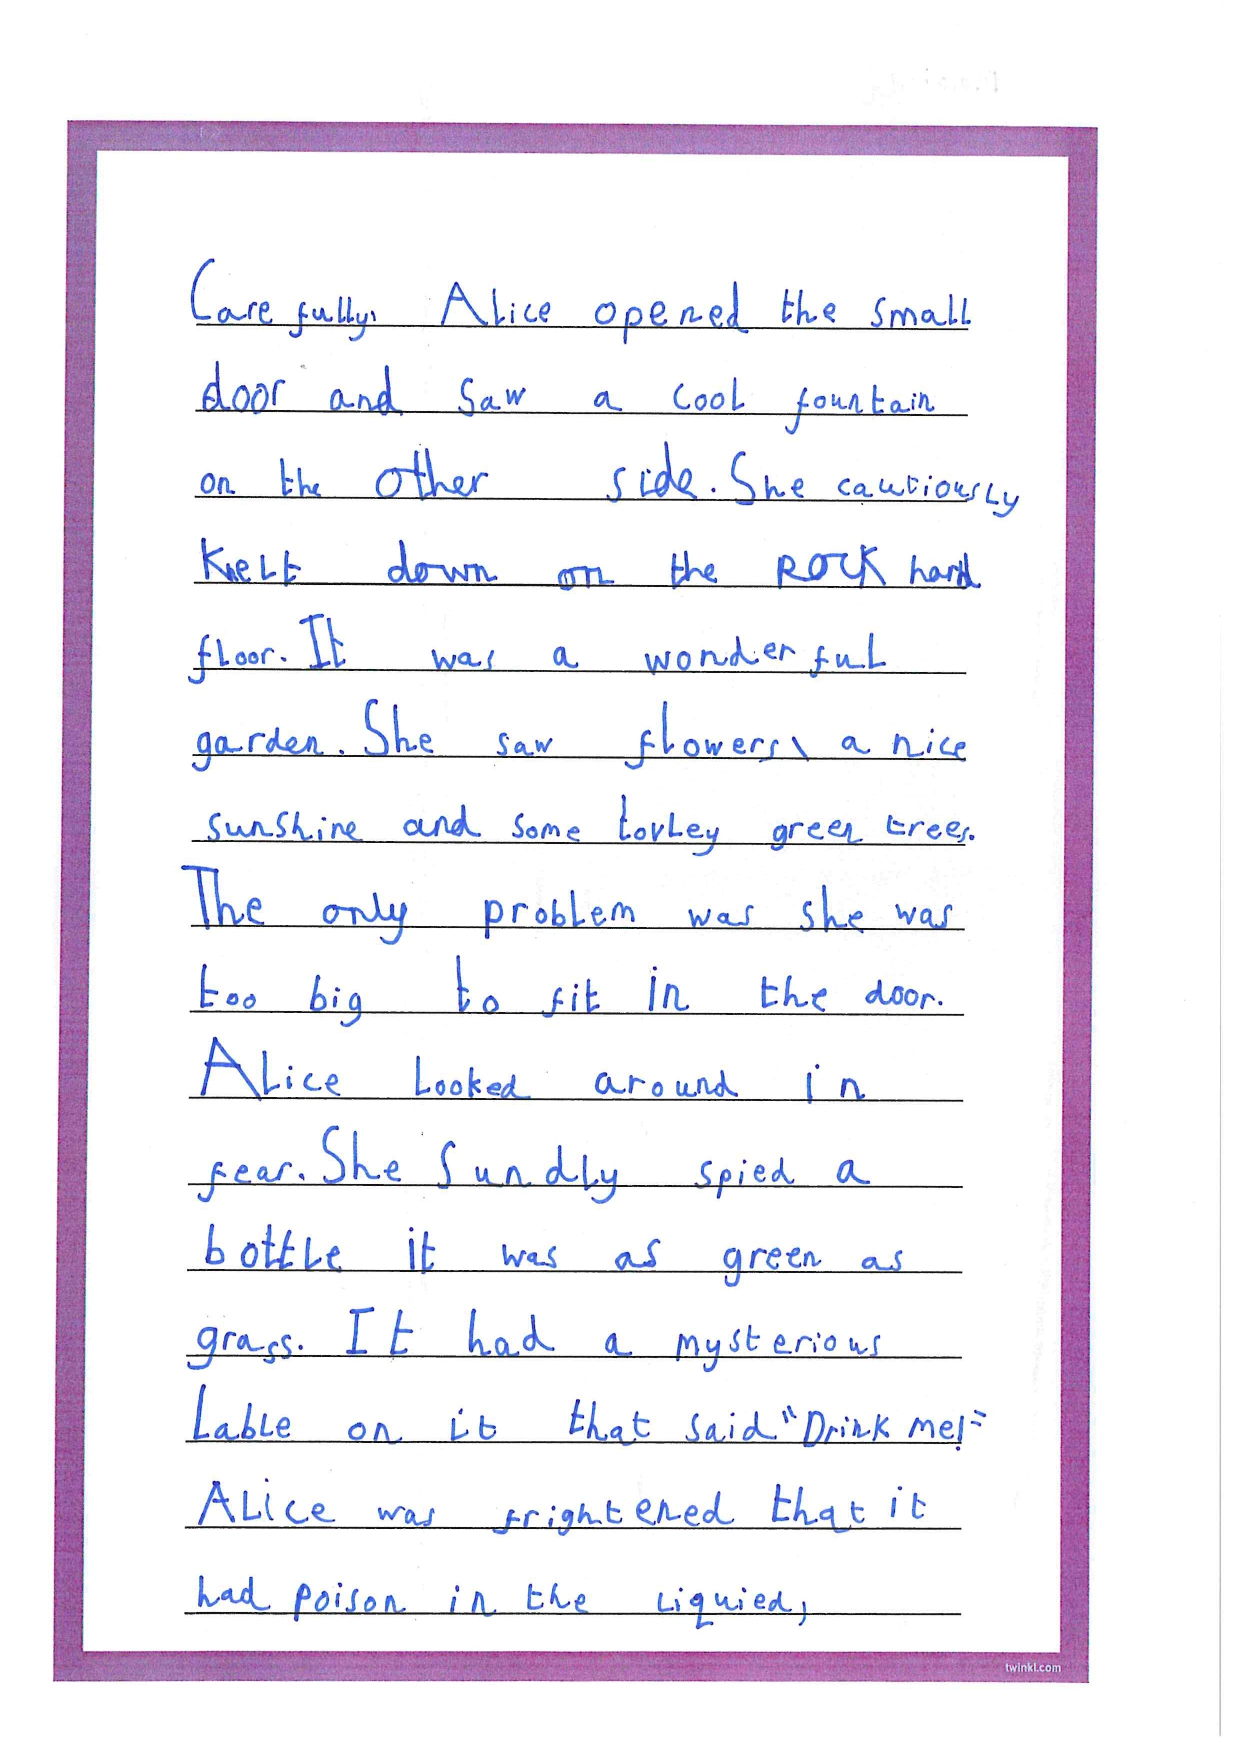 Carefully, Alice opened the small
door and saw a cool fountain
on the other side. She cautiously
knelt down on the rock hard
floor. It was a wonderful
garden. She saw flowers, a nice
sunshine and some lovley green trees.
The only problem was she was
too big to fit in the door.
Alice looked around in
fear. She sundly spied a
bottle it was as green as
grass. It had a mysterious
lable on it that said "Drink me!"
Alice was frightened that it
had poison in the liquied,
twinkl.com